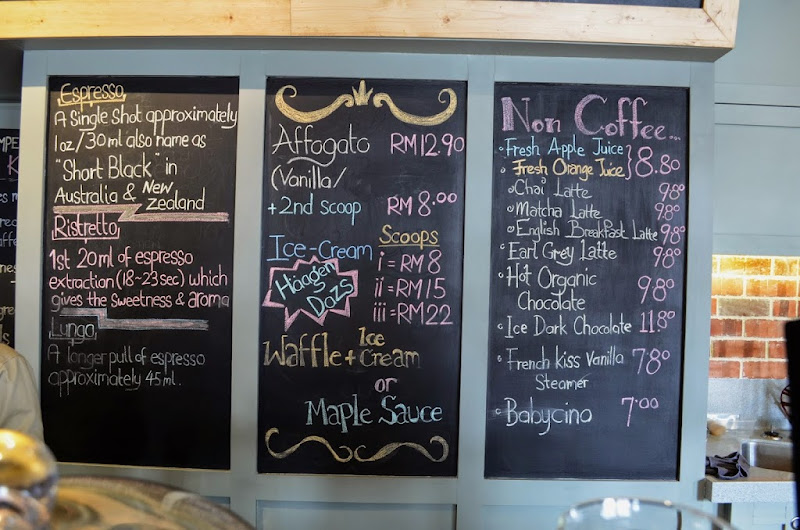 Espresso
A Single Shot approximately
1oz/30ml also name as
"Short Black" in
Australia & New
Zealand
Ristretto
1st 20ml of espresso
extraction (18~23sec) which
gives the sweetness & aroma
Lungo
A longer pull of espresso
approximately 45ml.
Affogato RM12.90
(Vanilla/
+2nd scoop RM8.00
Ice-Cream Scoops
Häagen Dazs
i = RM8
ii = RM15
iii = RM22
Waffle + Ice Cream
or
Maple Sauce
Non Coffee...
Fresh Apple Juice
Fresh Orange Juice } 8.80
Chai Latte 9.80
Matcha Latte 9.80
English Breakfast Latte 9.80
Earl Grey Latte 9.80
Hot Organic
Chocolate 9.80
Ice Dark Chocolate 11.80
French kiss Vanilla 7.80
Steamer
Babycino 7.00